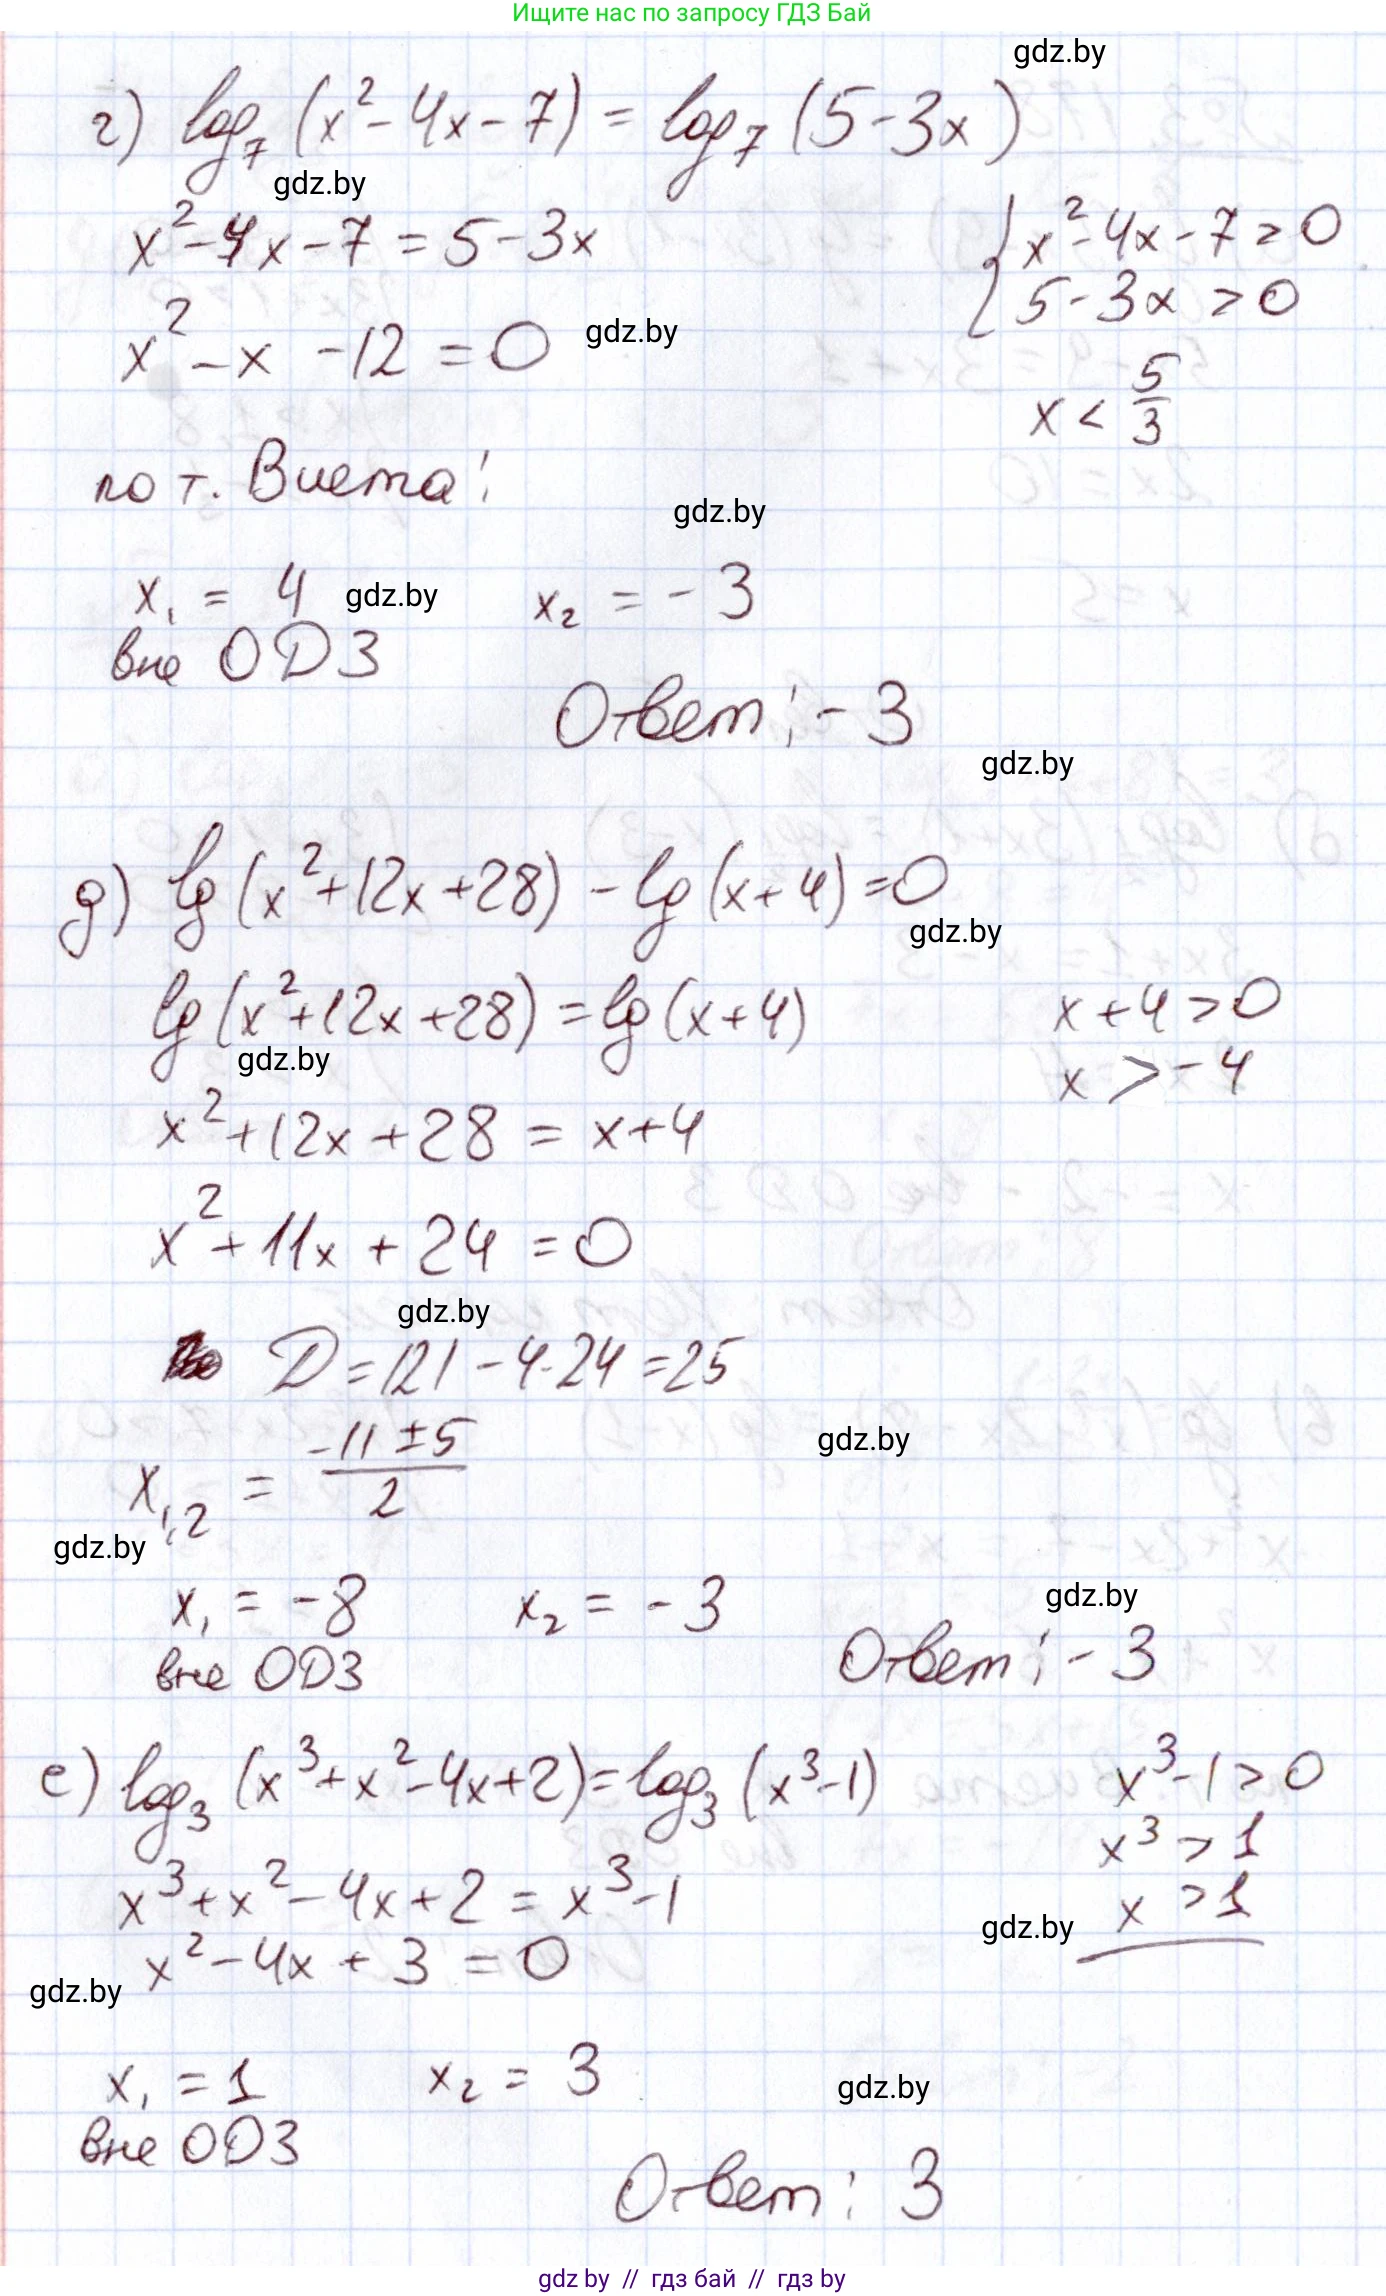 Ищите нас по запросу ГДЗ Бай
gdz.by
г) log₇ (x² - 4x - 7) = log₇ (5 - 3x)
gdz.by
x² - 4x - 7 = 5 - 3x
{ x² - 4x - 7 > 0
5 - 3x > 0
x² - x - 12 = 0
gdz.by
x < 5/3
по т. Виета:
gdz.by
x₁ = 4
gdz.by
x₂ = -3
вне ОДЗ
Ответ: -3
gdz.by
д) lg (x² + 12x + 28) - lg (x + 4) = 0
gdz.by
lg (x² + 12x + 28) = lg (x + 4)
x + 4 > 0
gdz.by
x > -4
x² + 12x + 28 = x + 4
x² + 11x + 24 = 0
gdz.by
D = 121 - 4·24 = 25
x₁,₂ = (-11 ± 5)/2
gdz.by
gdz.by
x₁ = -8 x₂ = -3
gdz.by
вне ОДЗ
Ответ: -3
е) log₃ (x³ + x² - 4x + 2) = log₃ (x³ - 1)
x³ - 1 > 0
x³ > 1
x³ + x² - 4x + 2 = x³ - 1
x > 1
gdz.by
x² - 4x + 3 = 0
gdz.by
x₁ = 1 x₂ = 3
gdz.by
вне ОДЗ
Ответ: 3
gdz by // гдз бай // гдз by